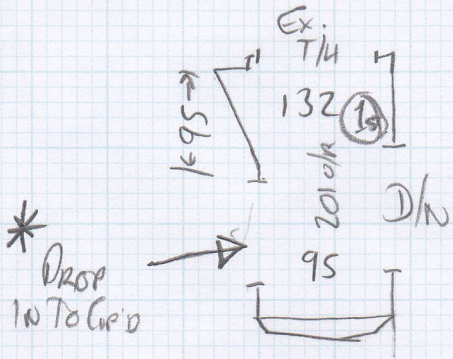 Ex.
T/H
132 (1st)
|←95→|
201 o/a
D/N
95
* DROP
INTO GRID